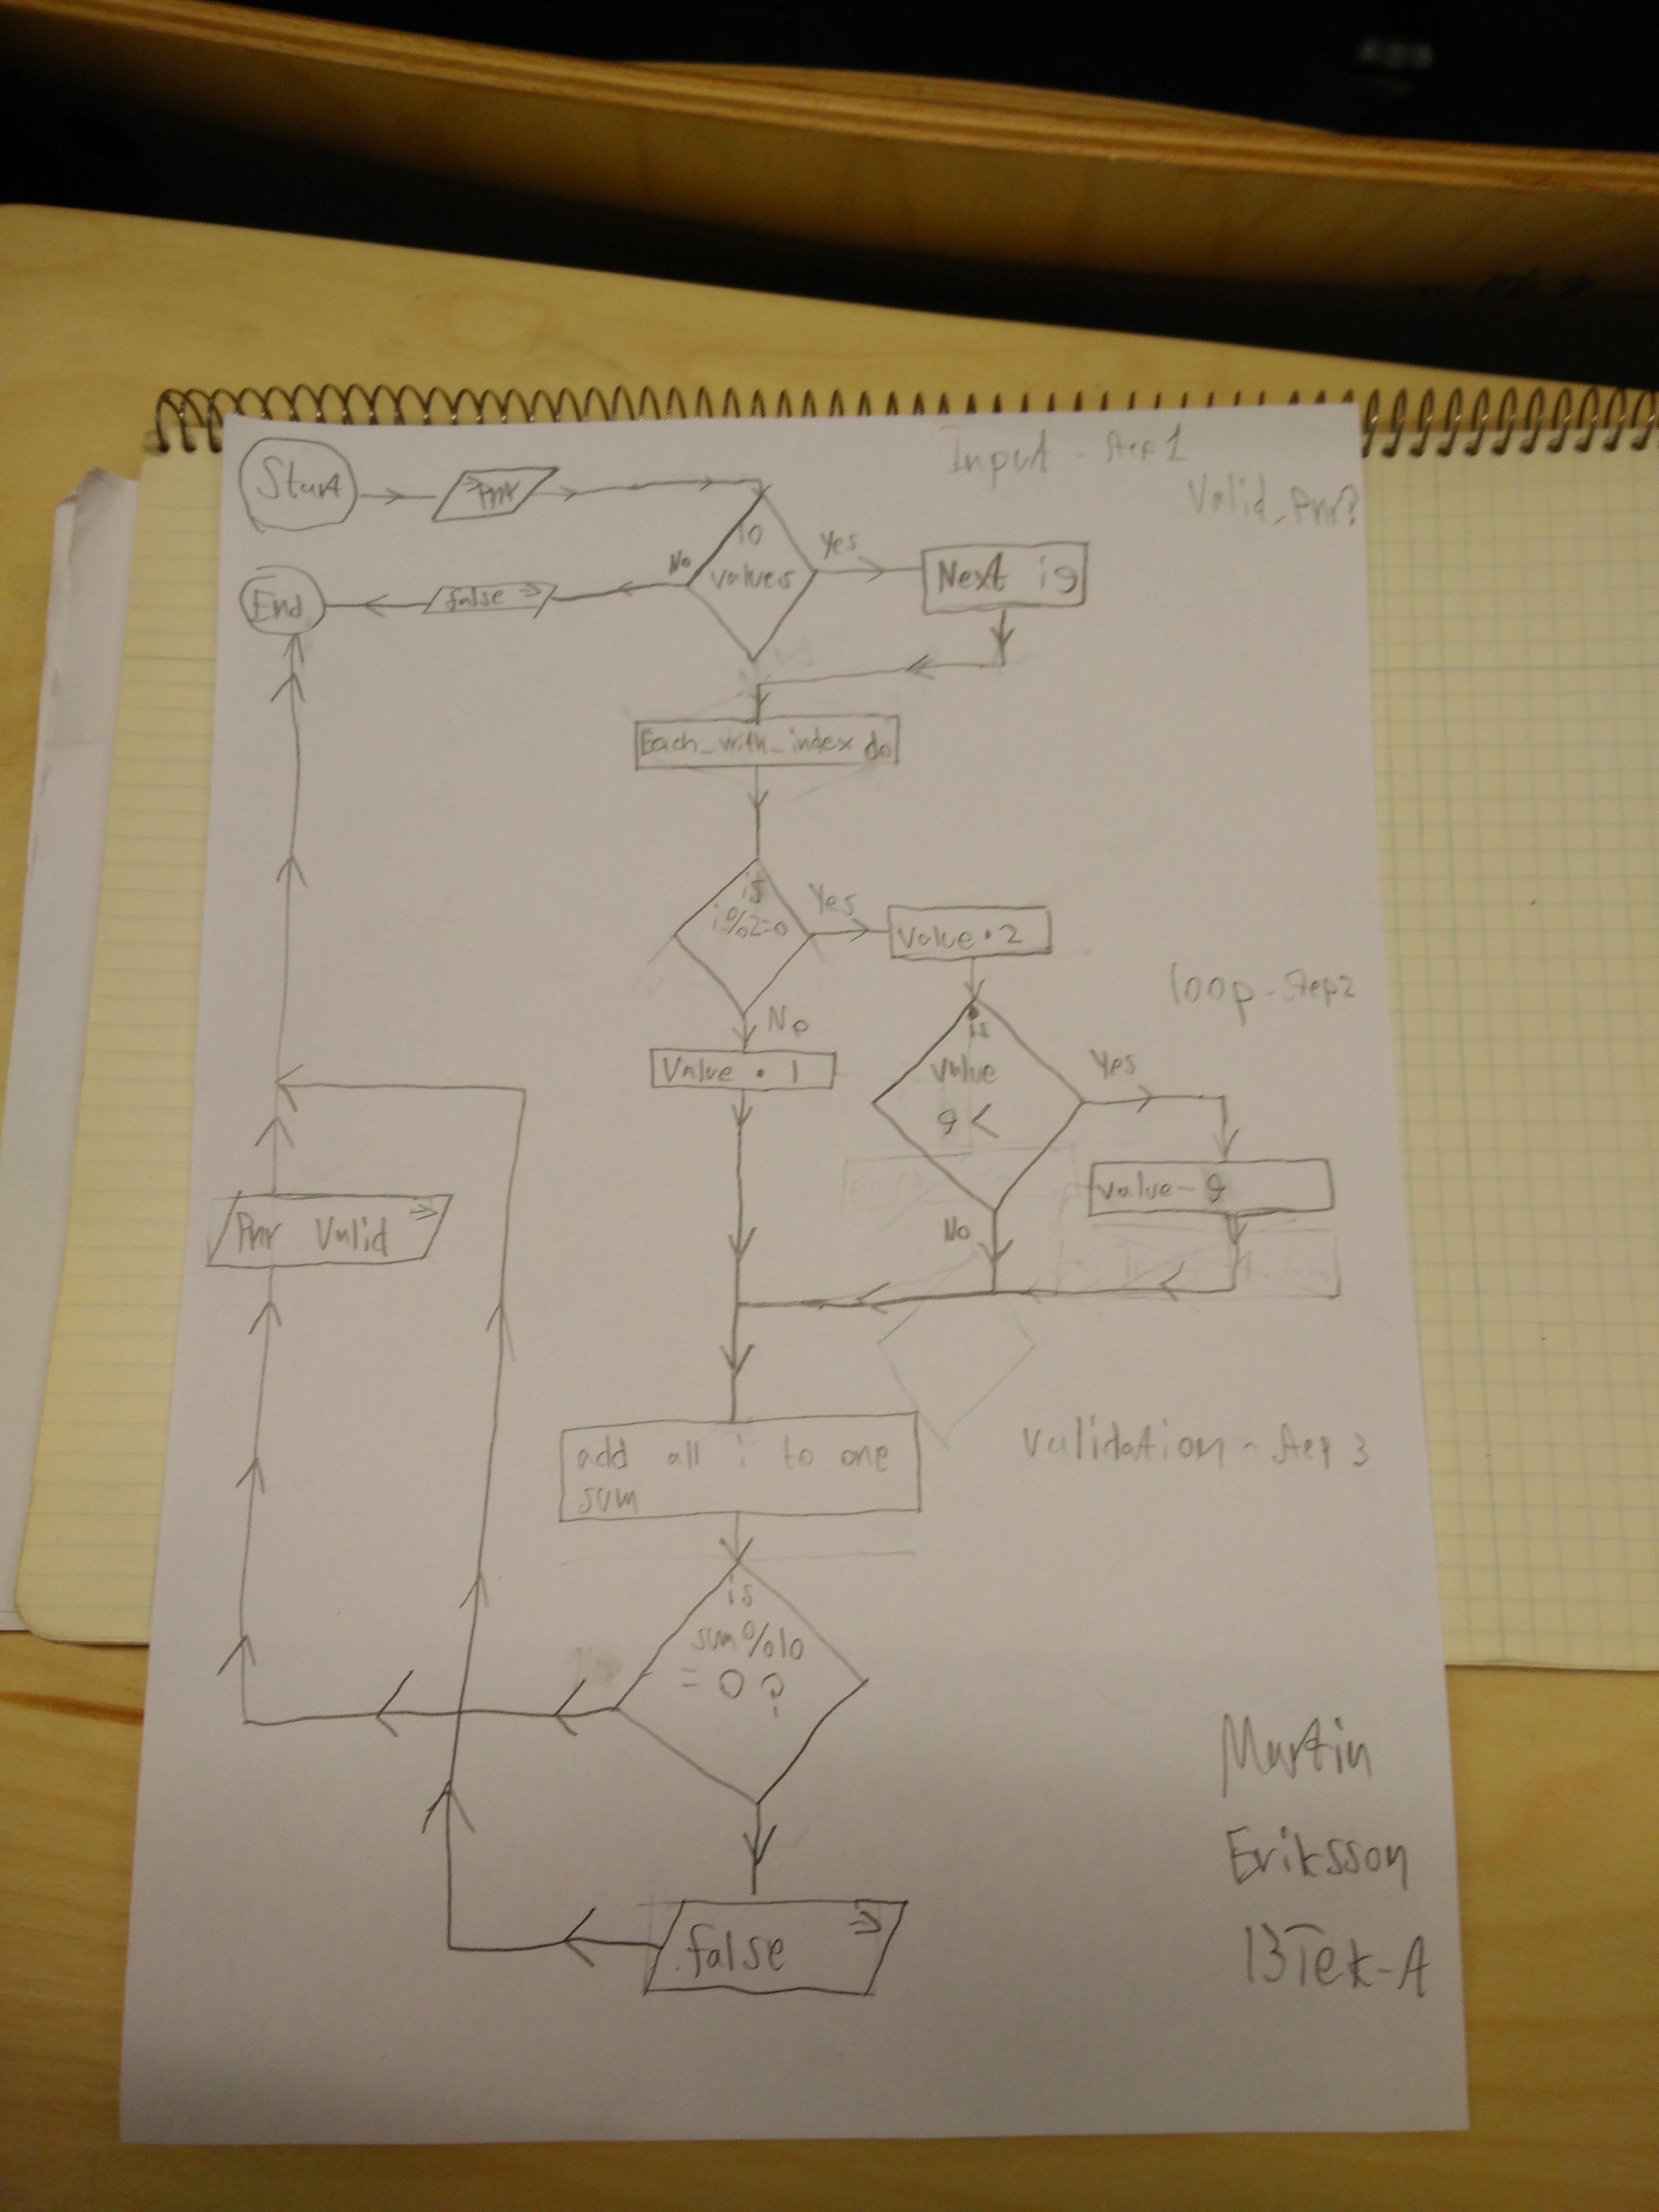 Input - Step 1
Valid_Pnr?
Start
Pnr
10
values
Yes
No
Next ig
false
End
Each_with_index do
is
i%2=0
Yes
Value • 2
loop - Step 2
No
Value • 1
is
value
9 <
Yes
value - 9
No
Pnr Valid
add all i to one
sum
Validation - Step 3
is
sum%10
= 0 ?
false
Martin
Eriksson
13Tek-A